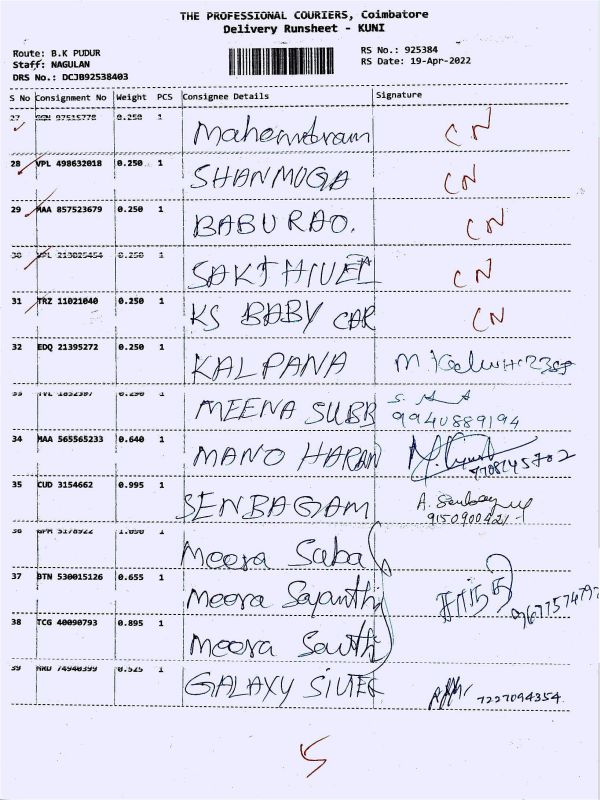 THE PROFESSIONAL COURIERS, Coimbatore
Delivery Runsheet - KUNI
Route: B.K PUDUR
Staff: NAGULAN
DRS No.: DCJB92538403
RS No.: 925384
RS Date: 19-Apr-2022
S No Consignment No Weight PCS Consignee Details Signature
27 97515778 0.250 1 CN
28 VPL 498632018 0.250 1 SHANMUGA CN
29 MAA 857523679 0.250 1 BABU RAO. CN
30 VPL 213025454 0.250 1 SAKTHIVEL CN
31 TRZ 11021040 0.250 1 KS BABY CAR CN
32 EDQ 21395272 0.250 1 KALPANA
33 1 MEENA SUBB 9940889194
34 MAA 565565233 0.640 1 MANO HARAN
35 CUD 3154662 0.995 1 SENBAGAM 9150900421
36 1 Meera Saba
37 BTN 530015126 0.655 1 Meera Sayanthi
38 TCG 40090793 0.895 1 Meera
39 74940399 0.525 1 GALAXY 7227094354